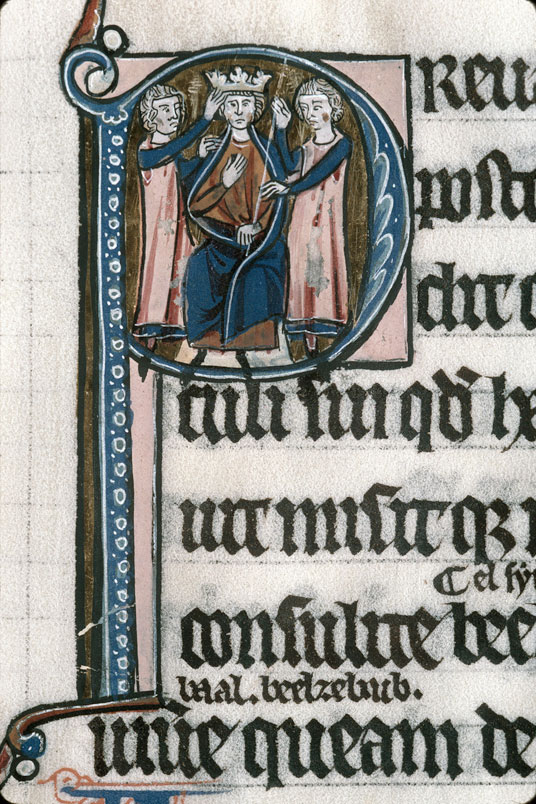 P REUA
poſtq
dit o
culi ſui qđ ha
uit miſitqꝫ
¶ el ſy
conſulite bee
baal. beelzebub.
uiuere queam de